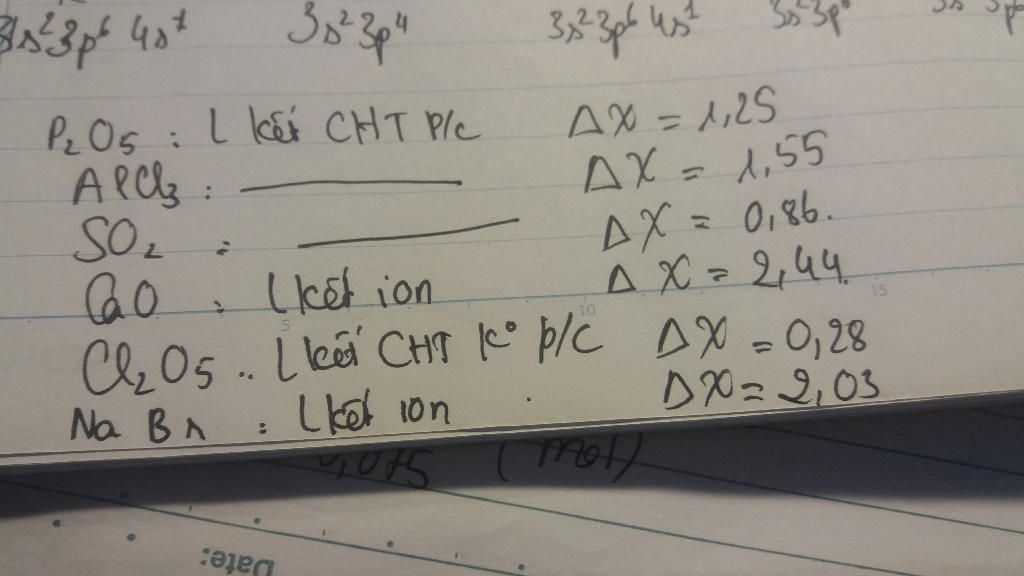 3s²3p⁶ 4s¹ 3s²3p⁴ 3s²3p⁶ 4s¹ 3s²3p⁶
P₂O₅ : L kết CHT p/c ΔX = 1,25
AlCl₃ : ΔX = 1,55
SO₂ : ΔX = 0,86.
CaO : L kết ion ΔX = 2,44.
5 10 15
Cl₂O₅ .. L kết CHT k° p/c ΔX = 0,28
NaBr : L kết ion . ΔX = 2,03
0,075 (mol)
Date: